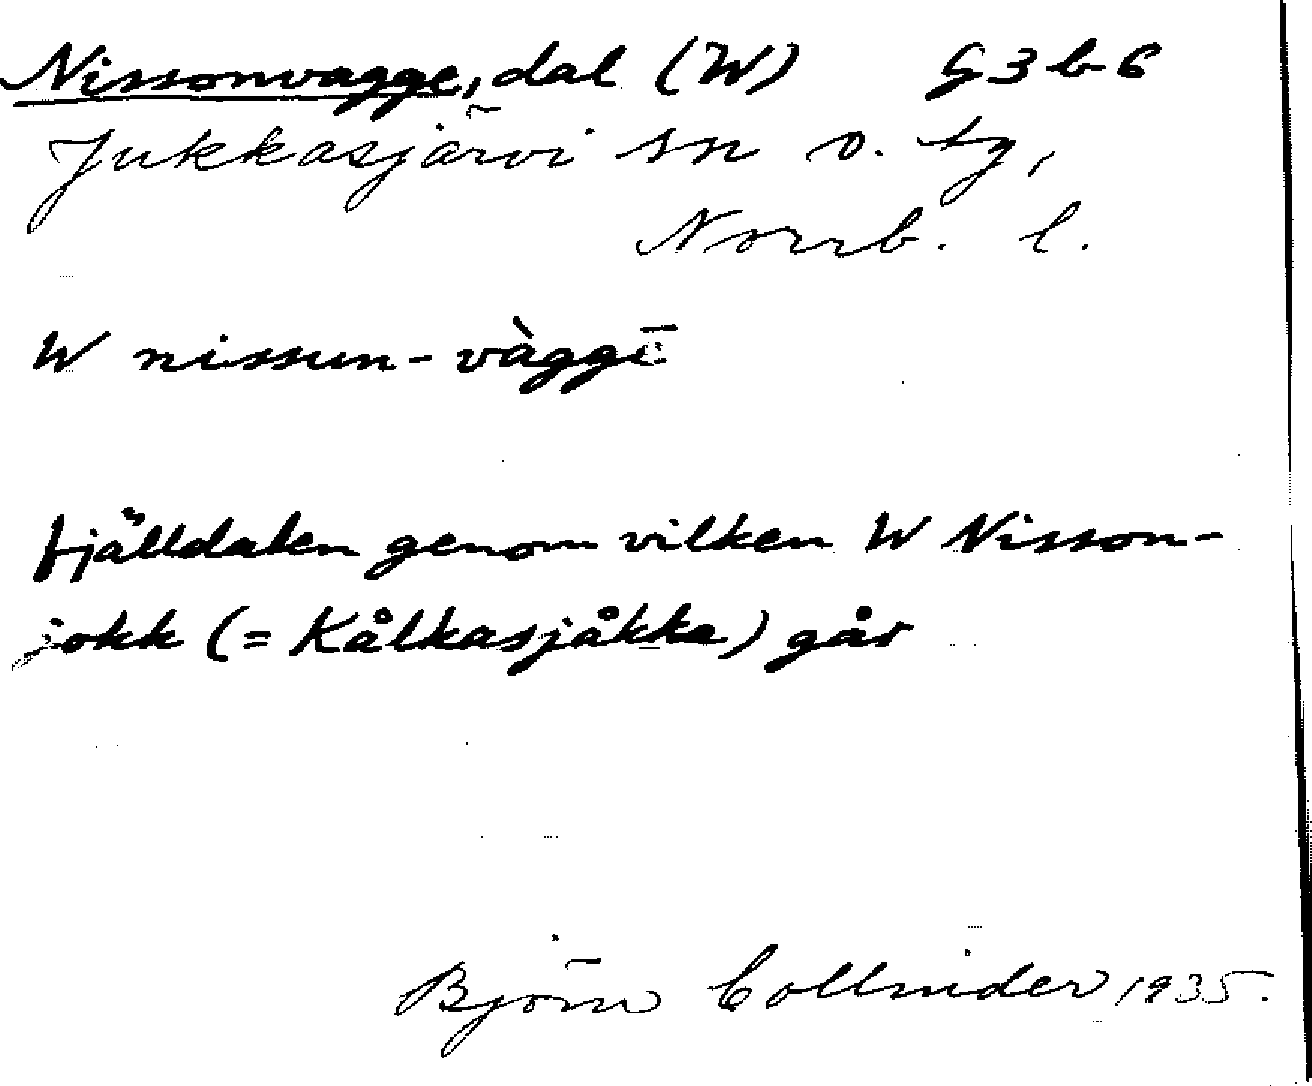 Nissonvagge, dal (W) G3b6
Jukkasjärvi sn o. tg,
Norrb. l.
W nissun-vàggē
fjälldalen genom vilken W Nisson-
jokk (= Kålkasjåkka) går
Björn Collinder 1935.